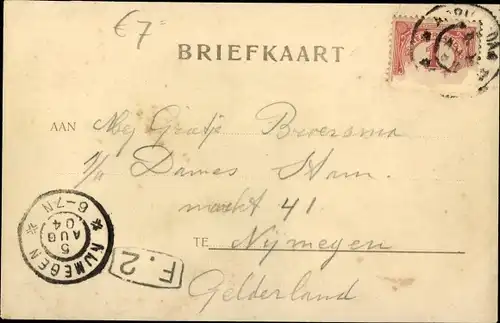 €7=
BRIEFKAART
AAN Mej Grietje Broersma
p/a Dames Ham
markt 41
TE Nijmegen
Gelderland
NIJMEGEN
5 AUG 04
6-7N
F.2